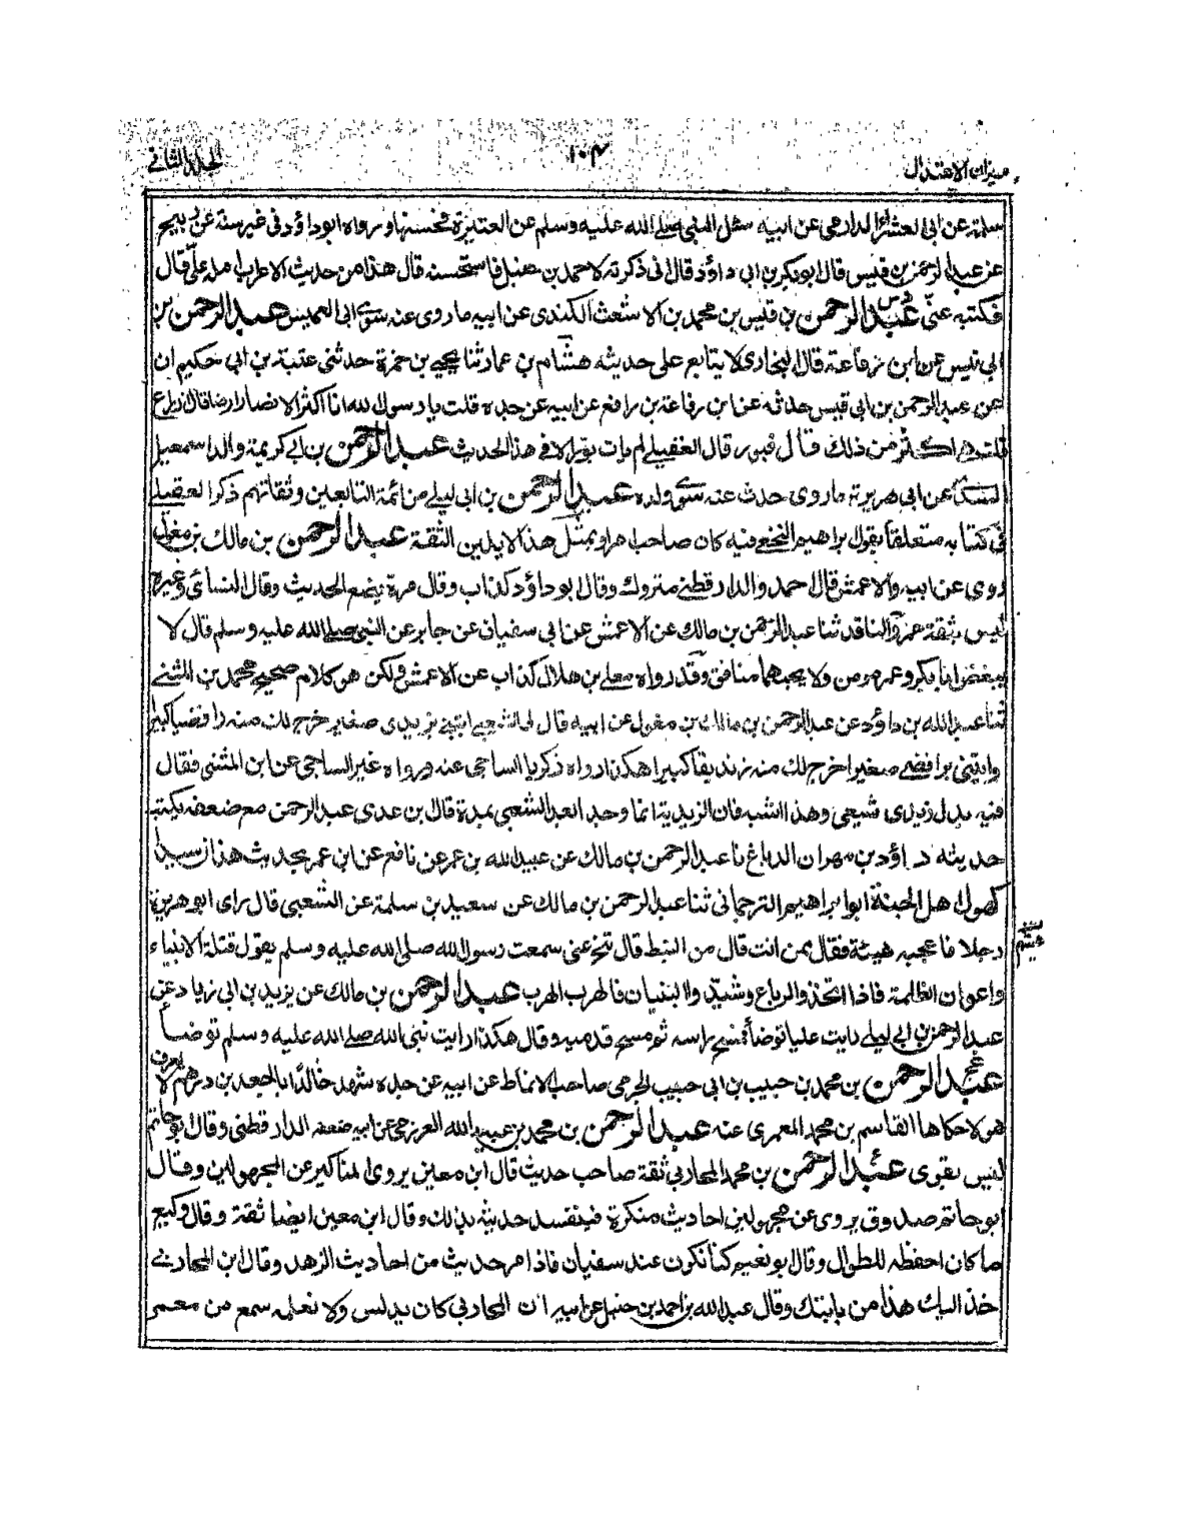 ميزان الاعتدال
١٠٤
الجلد الثانى
سلمة عن ابى العشراء الدارمى عن ابيه سئل النبى صلى الله عليه وسلم عن العتيرة فحسنها ورواه ابو داؤد فى غير سننه عن
عن عبد الرحمن بن قيس قال ابو بكر بن ابى داؤد قال انى ذكرته لاحمد بن حنبل فاستحسنه قال هذا من حديث الاعراب امله على قال
فكتبه عنى عبد الرحمن بن قيس بن محمد بن الاشعث الكندى عن ابيه ما روى عنه سوى ابى العميس عبد الرحمن بن
ابى قيس عن ابن رفاعة قال البخارى لا يتابع على حديثه هشام بن عمار ثنا يحيى بن حمزة حدثنى عتبة بن ابى حكيم ان
عن عبد الرحمن بن ابى قيس حدثه عن ابن رفاعة بن رافع عن ابيه عن جده قلت يا رسول الله انا اكثر الانصار ارضا قال ازرع
قلت هى اكثر من ذلك قال فبور قال العقيلى لم يات بورا الا فى هذا الحديث عبد الرحمن بن ابى كريمة والد اسمعيل
السدى عن ابى هريرة ما روى حدث عنه سوى ولده عبد الرحمن بن ابى ليلى من ائمة التابعين وثقاتهم ذكره العقيلى
فى كتابه متعلقا بقول ابراهيم النخعى فيه كان صاحب امراء وبمثل هذا لا يلين الثقة عبد الرحمن بن مالك بن مغول
روى عن ابيه والاعمش قال احمد والدارقطنى متروك وقال ابو داؤد كذاب وقال مرة يضع الحديث وقال النسائى وغيره
ليس بثقة عمرو الناقد ثنا عبد الرحمن بن مالك عن الاعمش عن ابى سفيان عن جابر عن النبى صلى الله عليه وسلم قال لا
يبغض ابا بكر وعمر مومن ولا يحبهما منافق وقد رواه معلى بن هلال كذاب عن الاعمش ولكن هو كلام صحيح محمد بن المثنى
ثنا عبد الله بن داؤد عن عبد الرحمن بن مالك بن مغول عن ابيه قال لى الشعبى ايتنى بزيدى صغير اخرج لك منه رافضيا كبيرا
وايتنى برافضى صغير اخرج لك منه زنديقا كبيرا هكذا رواه زكريا الساجى عنه ورواه غير الساجى عن ابن المثنى فقال
فيه بدل زيدى شيعى وهذا اشبه فان الزيدية انما وجدوا بعد الشعبى بمدة قال بن عدى عبد الرحمن مع ضعفه يكتب
حديثه داؤد بن مهران الدباغ نا عبد الرحمن بن مالك عن عبيد الله بن عمر عن نافع عن ابن عمر بحديث هذان سيدا
كهول اهل الجنة ابو ابراهيم الترجمانى ثنا عبد الرحمن بن مالك عن سعيد بن سلمة عن الشعبى قال راى ابو هريرة
رجلا فاعجبه هيئة فقال ممن انت قال من النبط قال تنح عنى سمعت رسول الله صلى الله عليه وسلم يقول قتلة الانبياء
واعوان الظلمة فاذا اتخذوا الرباع وشيدوا البنيان فالهرب الهرب عبد الرحمن بن مالك عن يزيد بن ابى زياد عن
عبد الرحمن بن ابى ليلى رايت عليا توضأ فمسح راسه ثم مسح قدميه وقال هكذا رايت نبى الله صلى الله عليه وسلم توضأ
عبد الرحمن بن محمد بن حبيب بن ابى حبيب الجرمى صاحب الانماط عن ابيه عن جده شهد خالدا بالجعد بن درهم لا يعرف
هو لا حكاها القاسم بن محمد المعمرى عنه عبد الرحمن بن محمد بن عبيد الله العرزمى عن ابيه ضعفه الدارقطنى وقال ابو حاتم
ليس بقوى عبد الرحمن بن محمد المحاربى ثقة صاحب حديث قال ابن معين يروى المناكير عن المجهولين وقال
ابو حاتم صدوق يروى عن مجهولين احاديث منكرة فيفسد حديثه بذلك وقال ابن معين ايضا ثقة وقال وكيع
ما كان احفظه للطوال وقال ابو نعيم كنا نكون عند سفيان فاذا مر حديث من احاديث الزهد وقال ابن المحاربى
خذ اليك هذا من بابتك وقال عبد الله بن احمد بن حنبل عن ابيه ان المحاربى كان يدلس ولا نعلمه سمع من معمر